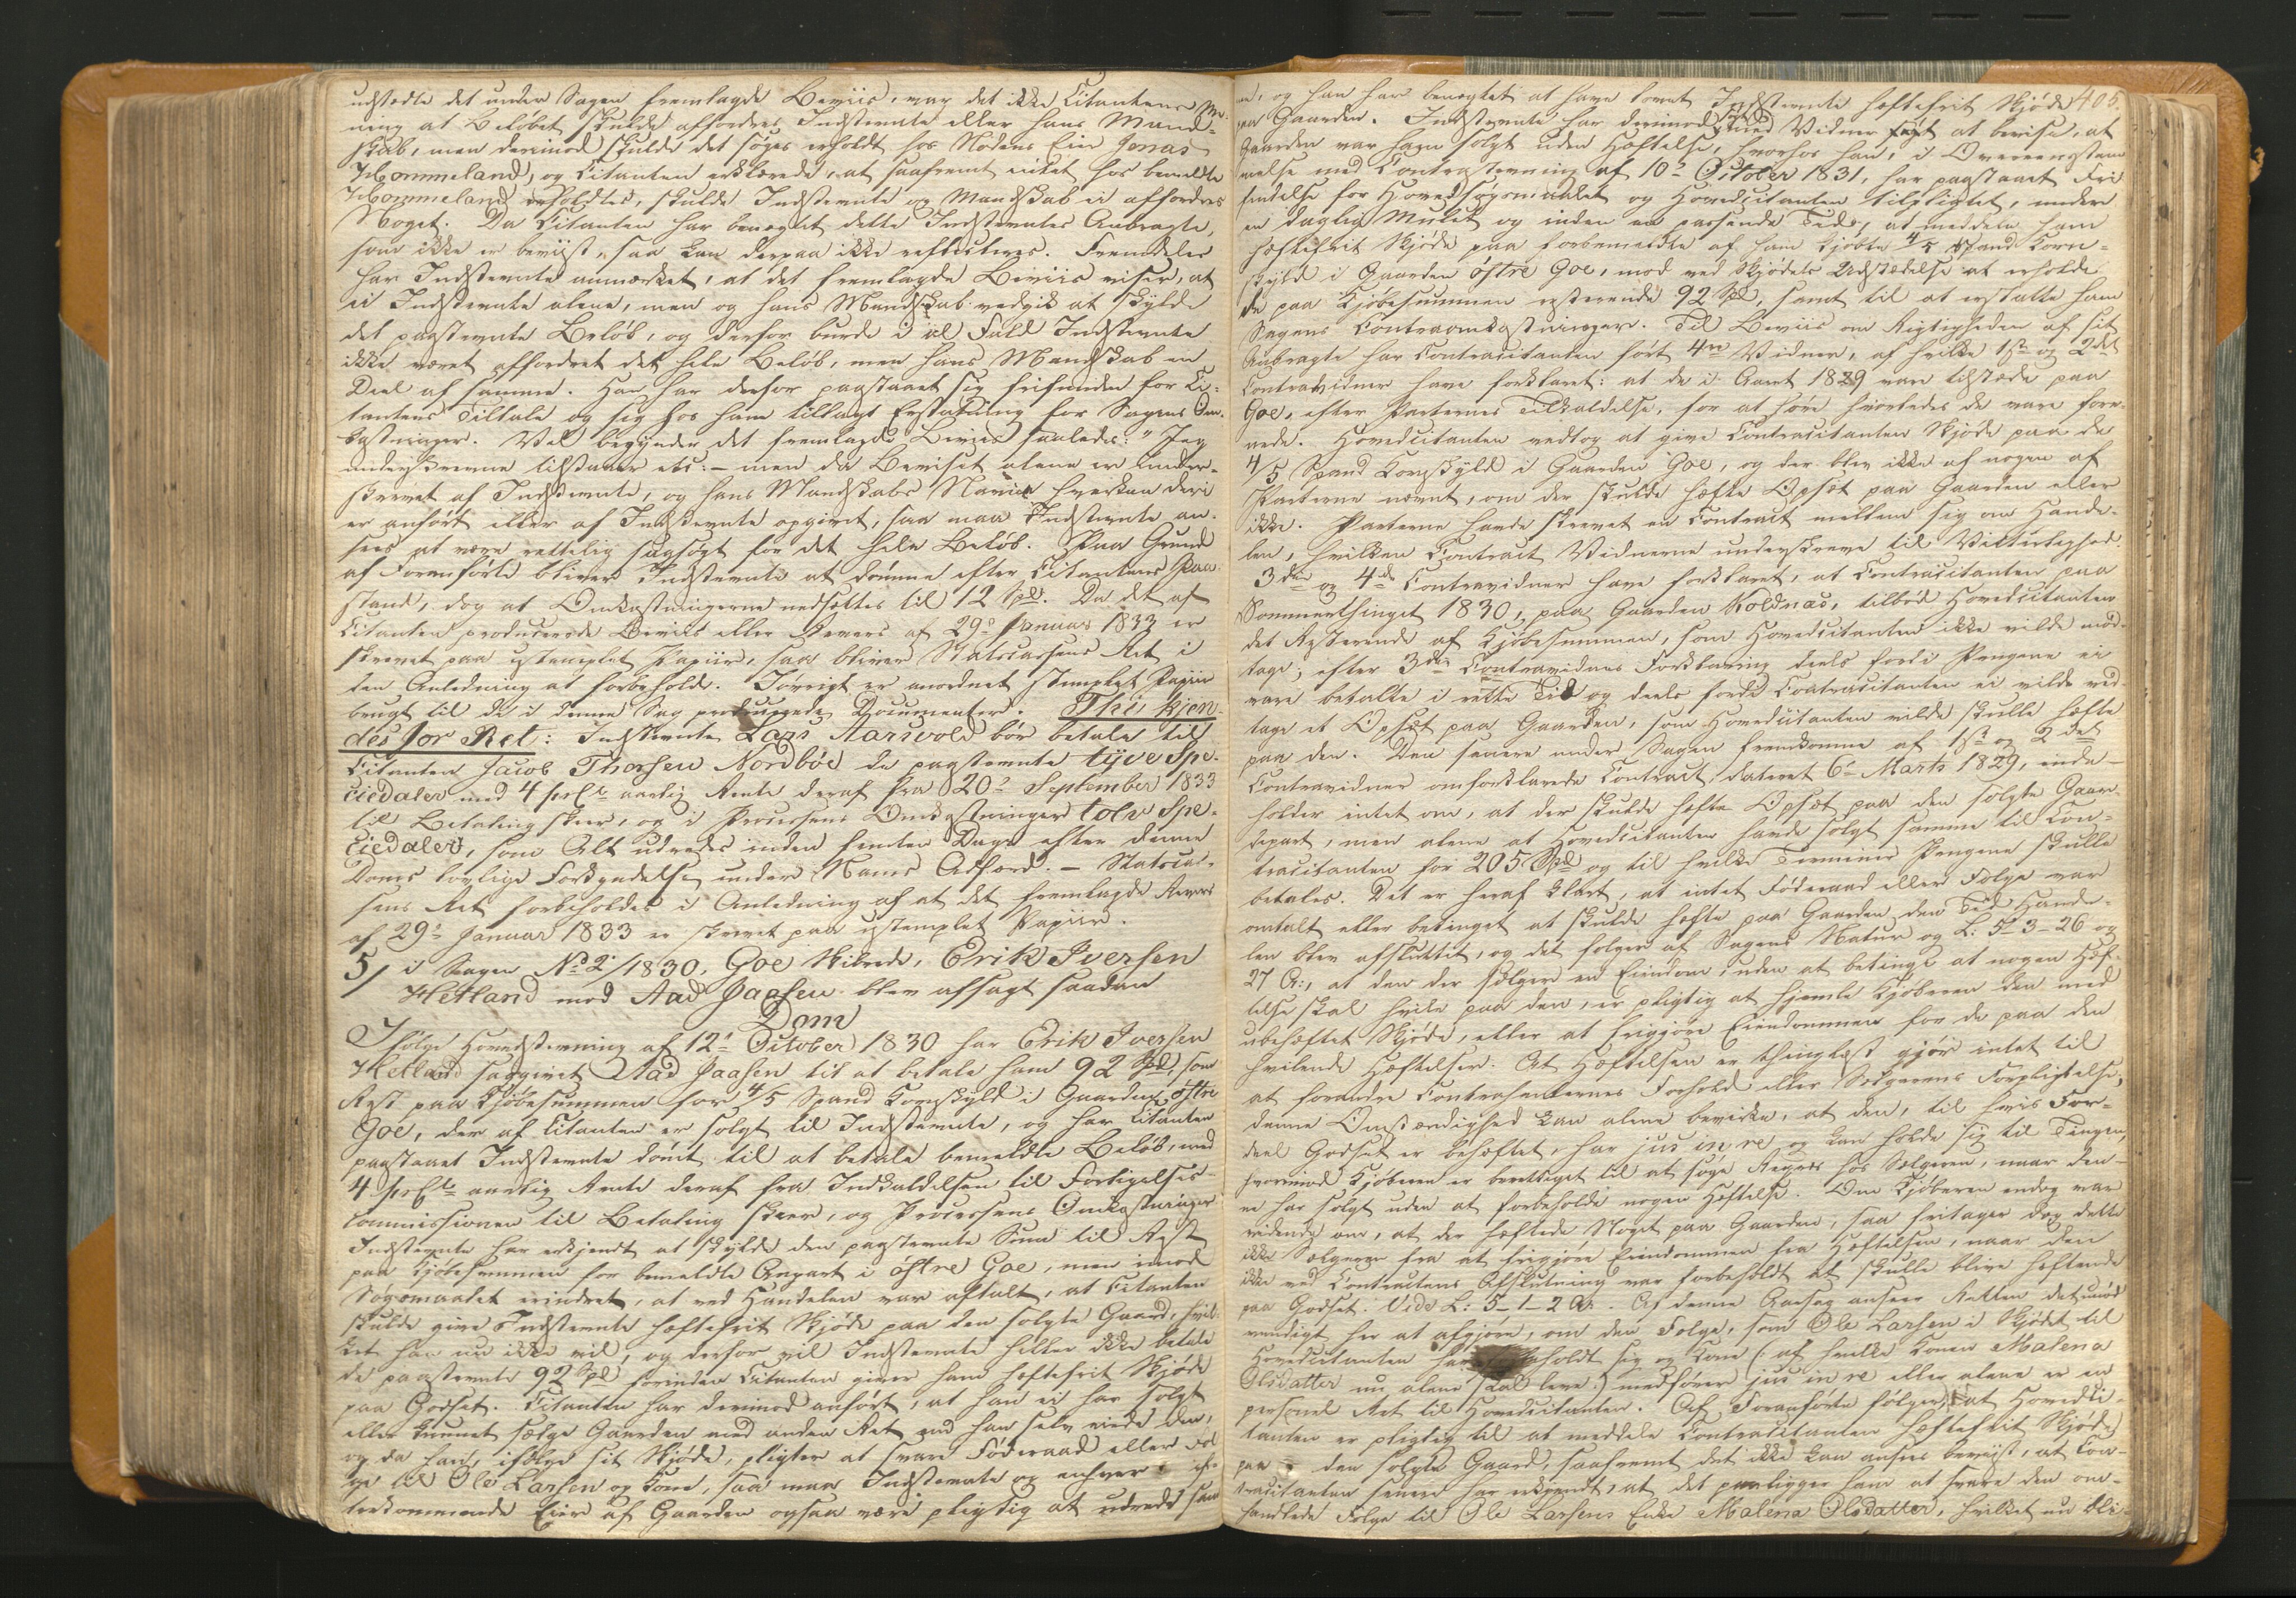 udstedte det under Sagen fremlagde Beviis, var det ikke Citantens Me-
ning at Beløbet skulde affordres Indstevnte eller hans Mand-
skab, men derimod skulde det søges erholdt hos Nodens Eier Jonas
Hommeland, og Citanten erklærede, at saafremt intet hos bemeldte
Hommeland erholdtes, skulde Indstevnte og Mandskab ei affordres
Noget. Da Citanten har benegtet dette Indstevntes Anbragte,
som ikke er beviist, saa kan derpaa ikke reflecteres. Fremdeles
har Indstevnte anmærket, at det fremlagde Beviis viser, at
ei Indstevnte alene, men og hans Mandskab vedgik at skylde
det paastevnte Beløb, og derfor burde i al Fald Indstevnte
ikke været affordret det hele Beløb, men hans Mandskab en
Deel af samme. Han har derfor paastaaet sig frifunden for Ci-
tantens Tiltale og sig hos ham tillagt Erstatning for Sagens Om-
kostninger. Vel begynder det fremlagde Beviis saaledes: "Jeg
underskrevne tilstaaer etc: - men da Beviset alene er under-
skrevet af Indstevnte, og hans Mandskabs Navne hverken deri
er anført eller af Indstevnte opgivet, saa maa Indstevnte an-
sees at være rettelig sagsøgt for det hele Beløb. Paa Grund
af Foranførte bliver Indstevnte at dømme efter Citantens Paa-
stand, dog at Omkostningerne nedsættes til 12 Spd. Da det af
Citanten producerede Beviis eller Revers af 29de Januar 1833 er
skrevet paa ustemplet Papiir, saa bliver Statscassens Ret i
den Anledning at forbeholde. Iøvrigt er anordnet stemplet Papiir
brugt til de i denne Sag producerede Documenter. Thi kjen-
des for Ret: Indstevnte Lars Aarsvold bør betale til
Citanten Jacob Thorsen Nordbøe de paastevnte tyve Spe-
ciedaler med 4 prCto aarlig Rente deraf fra 20de September 1833
til Betaling skeer, og i Processens Omkostninger tolv Spe-
ciedaler, som Alt udredes inden femten Dage efter denne
Doms lovlige Forkyndelse under Nams Adfærd. - Statscas-
sens Ret forbeholdes i Anledning af at det fremlagde Revers
af 29de Januar 1833 er skrevet paa ustemplet Papiir.
5/ i Sagen No 2/1830, Goe Skibrede, Erik Iversen
Hetland mod Aad Jaasen blev afsagt saadan
Dom
Ifølge Hovedstevning af 12te October 1830 har Erik Iversen
Hetland sagsøgt Aad Jaasen til at betale ham 92 Spd, som
Rest paa Kjøbesummen for 4/5 Spand Kornskyld i Gaarden østre
Goe, der af Citanten er solgt til Indstevnte, og har Citanten
paastaaet Indstevnte dømt til at betale bemeldte Beløb, med
4 prCto aarlig Rente deraf fra Indkaldelsen til Forligelses-
commissionen til Betaling skeer, og Processens Omkostninger
Indstevnte har erkjendt at skylde den paastevnte Sum til Rest
paa Kjøbesummen for bemeldte Anpart i østre Goe, men imod
Søgsmaalet erindret, at ved Handelen var aftalt, at Citanten
skulde give Indstevnte heftefrit Skjøde paa den solgte Gaard, hvil-
ket han nu ikke vil, og derfor vil Indstevnte heller ikke betale
de paastevnte 92 Spd forinden Citanten giver ham heftefrit Skjøde
paa Godset. Citanten har derimod anført, at han ei har solgt
eller kunnet sælge Gaarden med anden Ret end han selv eiede den,
og da han, ifølge sit Skjøde, pligter at svare Føderaad eller Føl-
ge til Ole Larsen og Kone, saa maa Indstevnte og enhver efter-
kommende Eier af Gaarden ogsaa være pligtig at udrede sam-
405.
me, og han har benegtet at have lovet Indstevnte heftefrit Skjøde
paa Gaarden. Indstevnte har derimod ved Vidner søgt at bevise, at
Gaarden var ham solgt uden Heftelse, hvorhos han, i Overeenstem-
melse med Contrastevning af 10de October 1831, har paastaaet Fri-
findelse for Hovedsøgsmaalet og Hovedcitanten tilpligtet, under
en daglig Mulct og inden en passende Tid, at meddele ham
heftefrit Skjøde paa forbemeldte af ham kjøbte 4/5 Spand Korn-
skyld i Gaarden østre Goe, mod ved Skjødets Udstedelse at erholde
de paa Kjøbesummen resterende 92 Spd, samt til at erstatte ham
Sagens Contraomkostninger. Til Beviis om Rigtigheden af sit
Anbragte har Contracitanten ført 4re Vidner, af hvilke 1ste og 2det
Contravidner have forklaret: at de i Aaret 1829 vare tilstede paa
Goe, efter Parternes Tilkaldelse, for at høre hvorledes de vare fore-
nede. Hovedcitanten vedtog at give Contracitanten Skjøde paa de
4/5 Spand Kornskyld i Gaarden Goe, og der blev ikke af nogen af
Parterne nævnt, om der skulde hefte Opsæt paa Gaarden eller
ikke. Parterne havde skrevet en Contract mellem sig om Hande-
len, hvilken Contract Vidnerne underskreve til Vitterlighed.
3die og 4de Contravidner have forklaret, at Contracitanten paa
Sommerthinget 1830, paa Gaarden Koldnæs, tilbød Hovedcitanten
det Resterende af Kjøbesummen, som Hovedcitanten ikke vilde mod-
tage; efter 3die Contravidnes Forklaring deels fordi Pengene ei
vare betalte i rette Tid og deels fordi Contracitanten ei vilde ved-
tage et Opsæt paa Gaarden, som Hovedcitanten vilde skulle hefte
paa den. Den senere under Sagen fremkomne af 1ste og 2det
Contravidner omforklarede Contract, dateret 6te Marts 1829, inde-
holder intet om, at der skulde hefte Opsæt paa den solgte Gaar-
depart, men alene at Hovedcitanten havde solgt samme til Con-
tracitanten for 205 Spd og til hvilke Terminer Pengene skulle
betales. Det er heraf klart, at intet Føderaad eller Følge var
omtalt eller betinget at skulde hefte paa Gaarden den Tid Hande-
len blev afsluttet, og det følger af Sagens Natur og L: 5-3-26 og
27 A:, at den der sælger en Eiendom, uden at betinge at nogen Hef-
telse skal hvile paa den, er pligtig at hjemle Kjøberen den med
ubeheftet Skjøde, eller at frigjøre Eiendommen for de paa den
hvilende Heftelser. At Heftelsen er thinglæst gjør intet til
at forandre Contrahenternes Forhold eller Sælgerens Forpligtelse;
denne Omstændighed kan alene bevirke, at den, til hvis For-
deel Godset er beheftet, har jus in re og kan holde sig til Tingen,
hvorimod Kjøberen er berettiget til at søge Regres hos Sælgeren, naar den-
ne har solgt uden at forbeholde nogen Heftelse. Om Kjøberen endog var
vidende om, at der heftede Noget paa Gaarden, saa fritager dog dette
ikke Sælgeren fra at frigjøre Eiendommen fra Heftelsen, naar den
ikke ved Contractens Afslutning var forbeholdt at skulle blive heftende
paa Godset. Vide L: 5-1-2 A:. Af denne Aarsag anseer Retten det unød-
vendigt her at afgjøre, om den Følge, som Ole Larsen i Skjødet til
Hovedcitanten har forbeholdt sig og Kone (: af hvilke Konen Malena
Olsdatter nu alene skal leve:) medfører jus in re eller alene er en
personel Ret til Hovedcitanten. Af Foranførte følger, at Hovedci-
tanten er pligtig til at meddele Contracitanten heftefrit Skjøde
paa den solgte Gaard, saafremt det ikke kan ansees beviist, at Con-
tracitanten senere har erkjendt, at det paaligger ham at svare den om-
handlede Følge til Ole Larsens Enke Malena Olsdatter, hvilket nu bli-